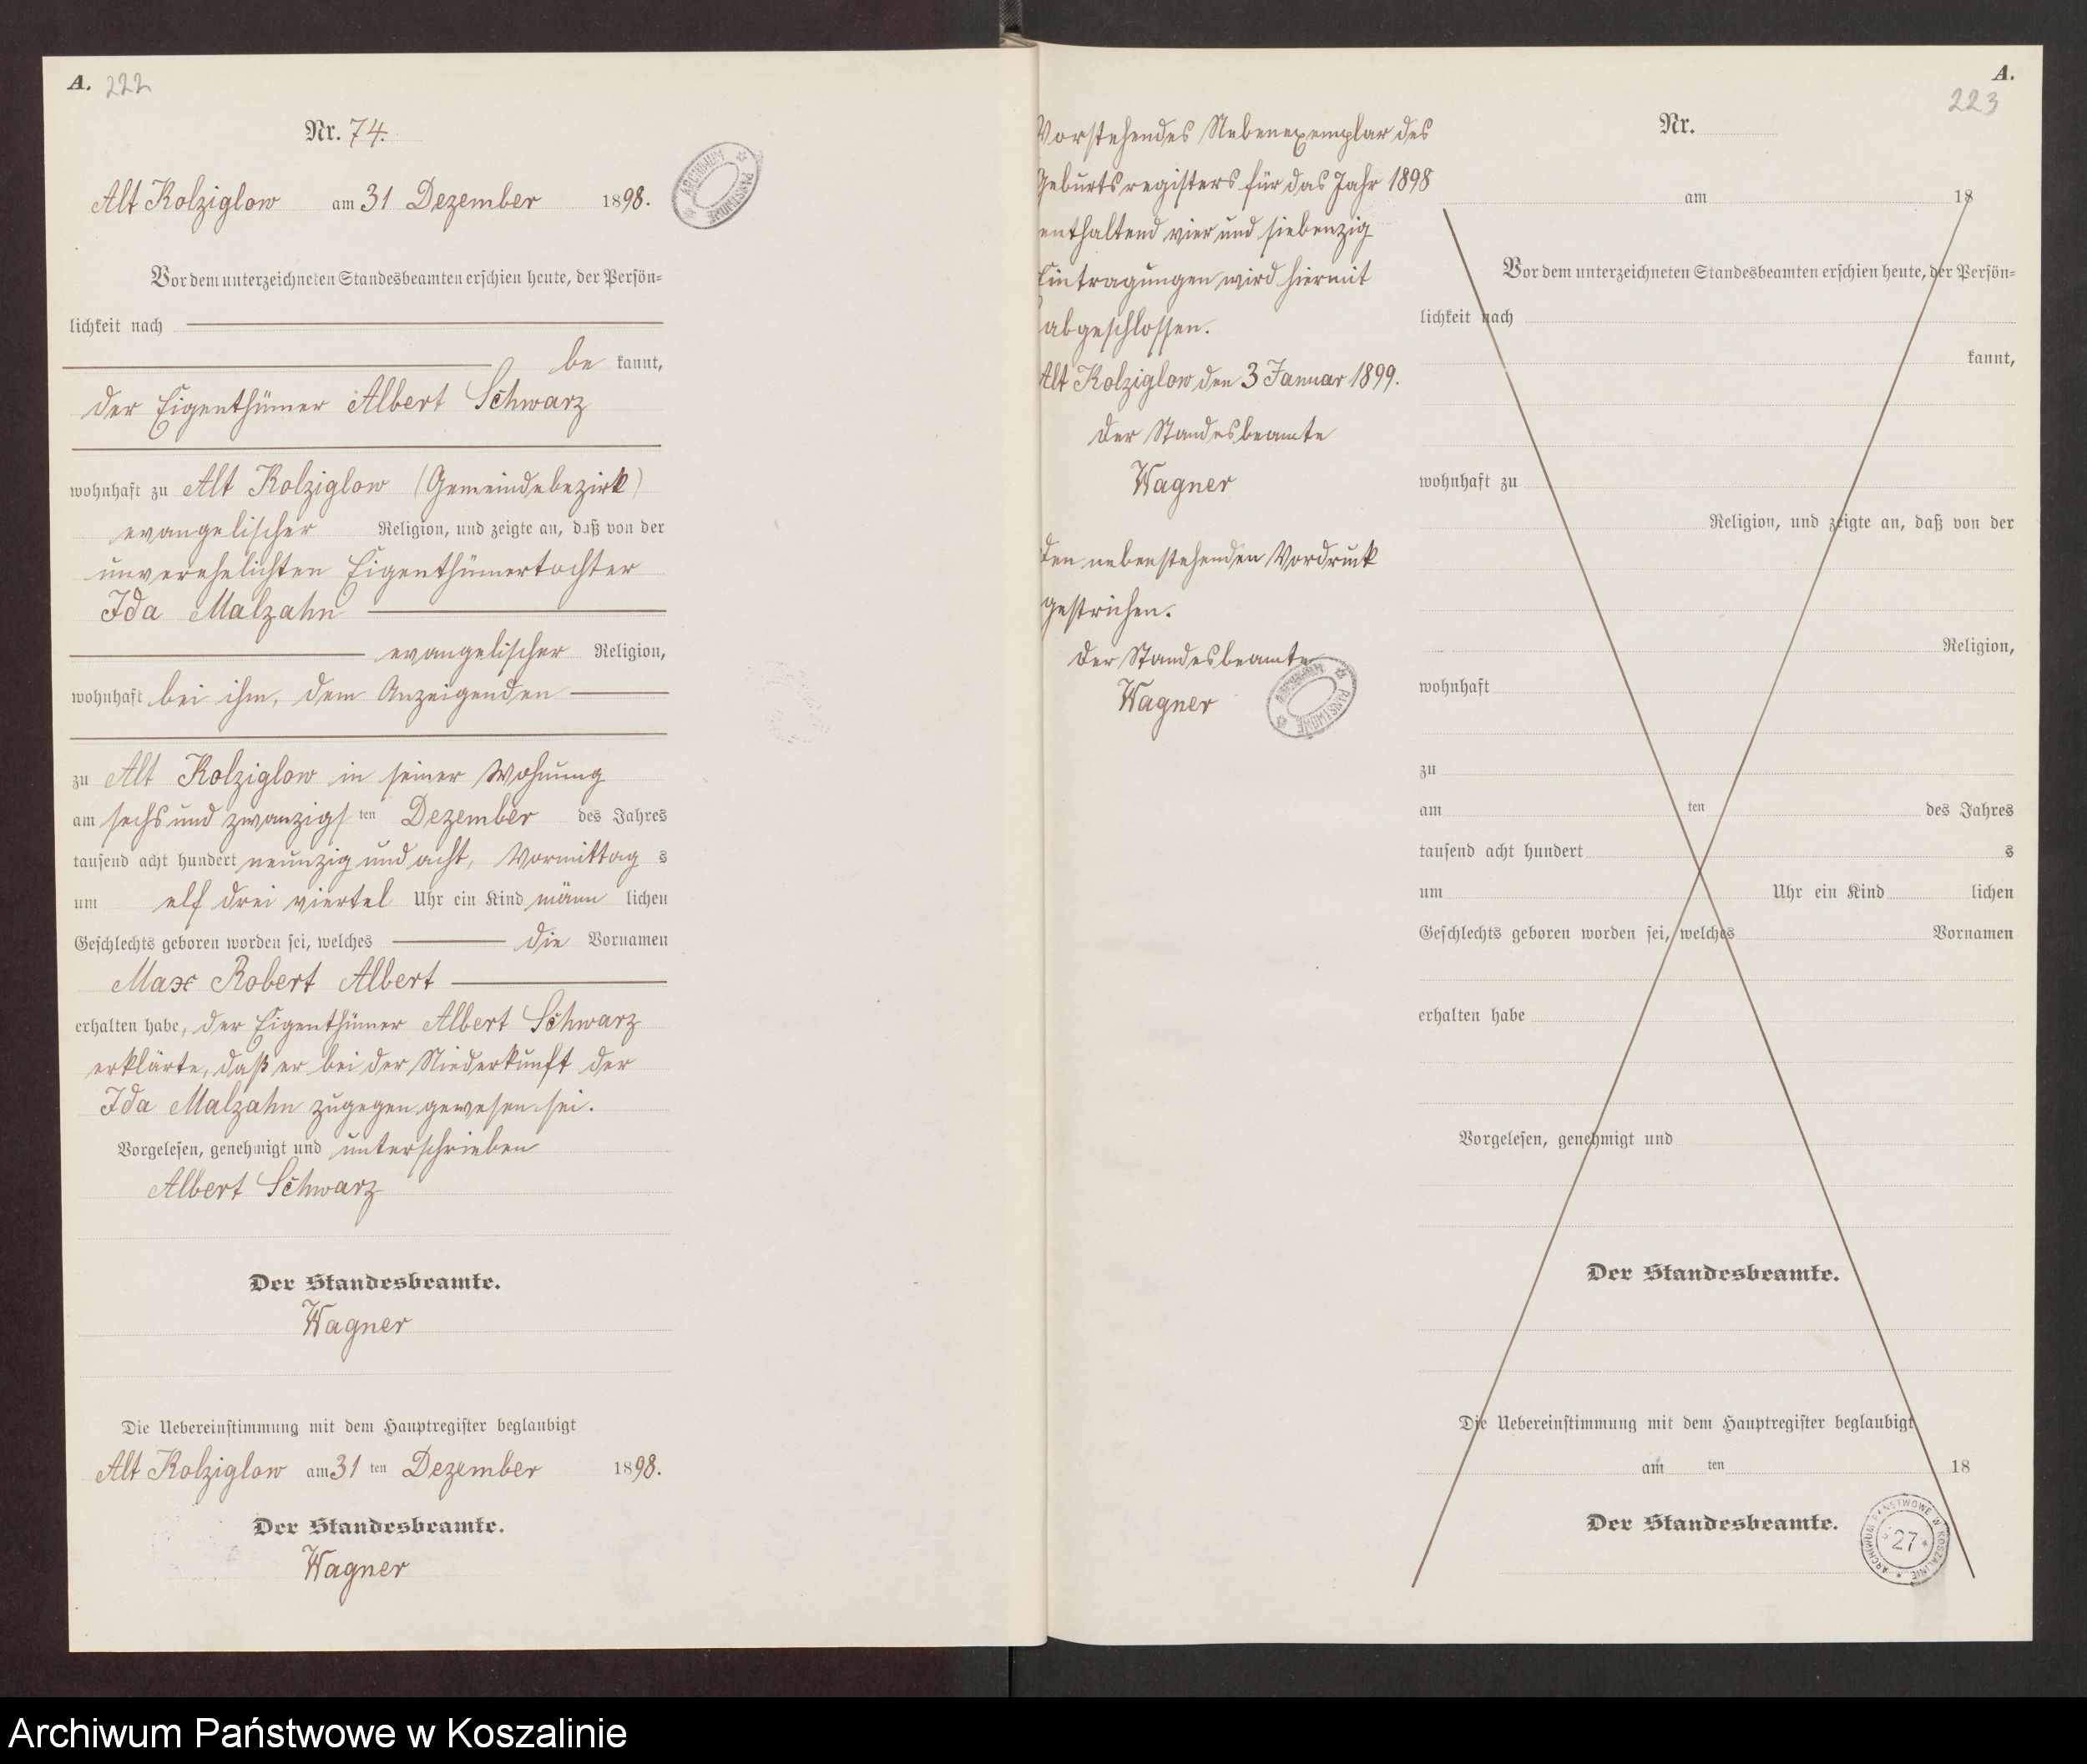 A. 222
Nr. 74.
Alt Kolziglow am 31 Dezember 1898.
ARCHIWUM PAŃSTWOWE
Vor dem unterzeichneten Standesbeamten erschien heute, der Persön-
lichkeit nach
be kannt,
der Eigenthümer Albert Schwarz
wohnhaft zu Alt Kolziglow (Gemeindebezirk)
evangelischer Religion, und zeigte an, daß von der
unverehelichten Eigenthümertochter
Ida Malzahn
evangelischer Religion,
wohnhaft bei ihm, dem Anzeigenden
zu Alt Kolziglow in seiner Wohnung
am sechs und zwanzigs ten Dezember des Jahres
tausend acht hundert neunzig und acht, Vormittag s
um elf drei viertel Uhr ein Kind männ lichen
Geschlechts geboren worden sei, welches die Vornamen
Max Robert Albert
erhalten habe, der Eigenthümer Albert Schwarz
erklärte, daß er bei der Niederkunft der
Ida Malzahn zugegen gewesen sei.
Vorgelesen, genehmigt und unterschrieben
Albert Schwarz
Der Standesbeamte.
Wagner
Die Uebereinstimmung mit dem Hauptregister beglaubigt
Alt Kolziglow am 31 ten Dezember 1898.
Der Standesbeamte.
Wagner
Vorstehendes Nebenexemplar des
Geburtsregisters für das Jahr 1898
enthaltend vier und siebenzig
Eintragungen wird hiermit
abgeschlossen.
Alt Kolziglow den 3 Januar 1899.
Der Standesbeamte
Wagner
Den nebenstehenden Vordruck
gestrichen.
Der Standesbeamte
Wagner
ARCHIWUM PAŃSTWOWE
A.
223
Nr.
am 18
Vor dem unterzeichneten Standesbeamten erschien heute, der Persön-
lichkeit nach
kannt,
wohnhaft zu
Religion, und zeigte an, daß von der
Religion,
wohnhaft
zu
am ten des Jahres
tausend acht hundert s
um Uhr ein Kind lichen
Geschlechts geboren worden sei, welches Vornamen
erhalten habe
Vorgelesen, genehmigt und
Der Standesbeamte.
Die Uebereinstimmung mit dem Hauptregister beglaubigt
am ten 18
Der Standesbeamte.
ARCHIWUM PAŃSTWOWE W KOSZALINIE
27
Archiwum Państwowe w Koszalinie